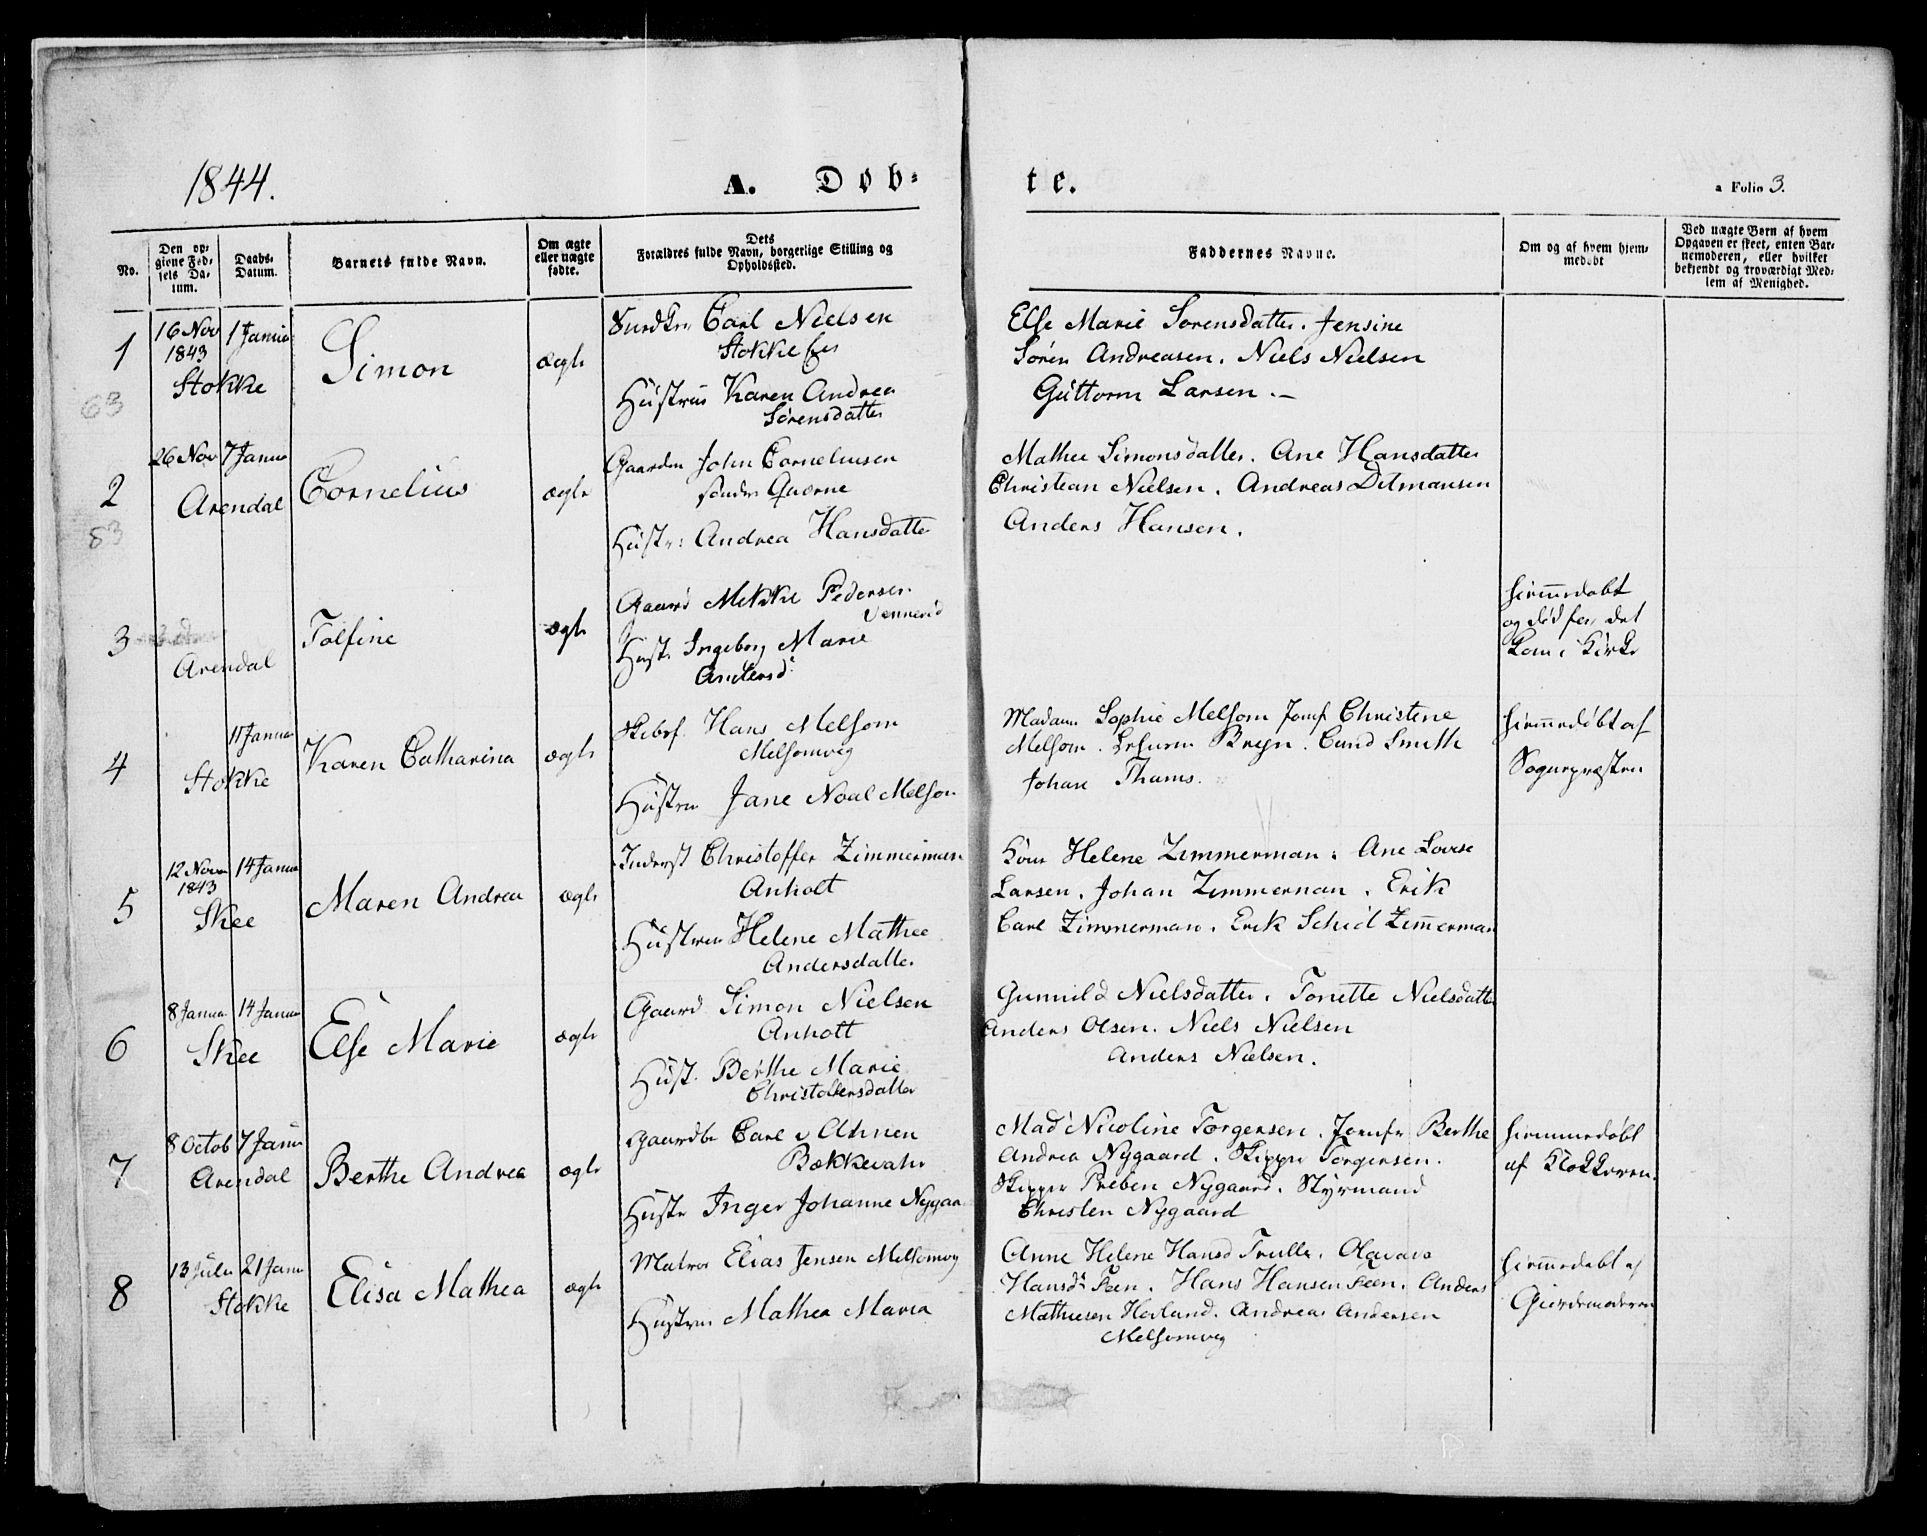 1844.
A. Døb=
te.
a Folio 3.
No.
Den op=
givne Fød=
sels Da=
tum.
Daabs=
Datum.
Barnets fulde Navn.
Om ægte
eller uægte
fødte.
Dets
Forældres fulde Navn, borgerlige Stilling og
Opholdssted.
Faddernes Navne.
Om og af hvem hjem=
medøbt
Ved uægte Børn af hvem
Opgaven er skeet, enten Bar=
nemoderen, eller hvilket
bekjendt og troværdigt Med=
lem af Menighed.
1
16 Nov
1843
1 Janua
Stokke
63
Simon
ægte
Carl Nielsen
Stokke
Hustrue Karen Andrea
Sørensdatter
Else Marie Sørensdatter. Jensine
Søren Andreasen. Niels Nielsen
Guttorm Larsen.
2
26 Nov
7 Janua
Arendal
83
Cornelius
ægte
Gaardm John Corneliusen
søndre Qværne
Hustr: Andrea Hansdatter
Mathee Simonsdatter. Ane Hansdatter
Christian Nielsen. Andreas Ditmansen
Anders Hansen.
3
Arendal
Tolfine
ægte
Gaard Mikkel Pedersen
Vennerød
Hust. Ingeborg Marie
Andersd
hiemmedøbt
og død før det
kom i Kirke
4
11 Janua
Stokke
Karen Catharina
ægte
Skibsf. Hans Melsom
Melsomvig
Hustru Jane Noal Melsom
Madam Sophie Melsom Jomf Christine
Melsom. Bryn. Cand Smith
Johan Thams.
hiemmedøbt af
Sognepræsten
5
12 Novm
1843
14 Janua
Skee
Maren Andrea
ægte
Inderst Christoffer Zimmerman
Anholt
Hustrue Helene Mathee
Andersdatter
Kone Helene Zimmerman. Ane Lovise
Larsen. Johan Zimmerman. Erik
Carl Zimmerman. Erik Schiel Zimmerman
6
8 Janua
14 Janua
Skee
Else Marie
ægte
Gaard Simon Nielsen
Anholt
Hust. Berthe Marie
Christoffersdatter
Gunnild Nielsdatter. Tonette Nielsdatter
Anders Olsen. Niels Nielsen
Anders Nielsen.
7
8 Octob
7 Janu
Arendal
Berthe Andrea
ægte
Gaardbr Carl v Ahnen
Bækkevahr
Hustr Inger Johanne Nygaa
Mad Nicoline Torgersen. Jomfr Berthe
Andrea Nygaard. Skipper Torgersen.
Skipper Preben Nygaard. Styrmand
Christen Nygaard
hiemmedøbt
af Klokkeren.
8
13 Julii
21 Janu
Stokke
Elisa Mathea
ægte
Matros Elias Jensen Melsomvig
Hustrue Mathea Maria
Anne Helene Hansd Trulle. Olava
Hansd Feen. Hans Hansen Feen. Anders
Mathiesen Hovland. Andreas Andersen
Melsomvig
hiemmedøbt af
Giordemoderen